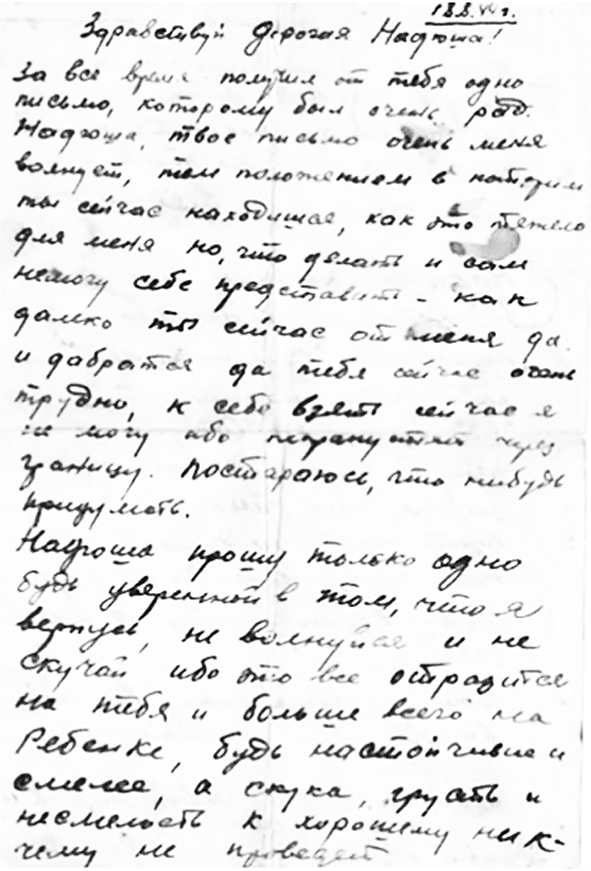 18.8.44 г.
Здравствуй дорогая Надюша!
За все время получил от тебя одно
письмо, которому был очень рад.
Надюша, твое письмо очень меня
волнует, тем положением в котором
ты сейчас находишся, как это тяжело
для меня но, что делать и сам
немогу себе представить – как
далеко ты сейчас от меня да
и дабратся да тебя сейчас очень
трудно, к себе взять сейчас я
не могу ибо непропустят через
границу. Постараюсь, что нибудь
придумать.
Надюша прошу только одно
будь уверенной в том, что я
вернусь, не волнуйся и не
скучай ибо это все отразится
на тебя и больше всего на
Ребенке, будь настойчивие и
смелее, а скука, грусть и
несмелость к хорошему ник-
чему не проведет